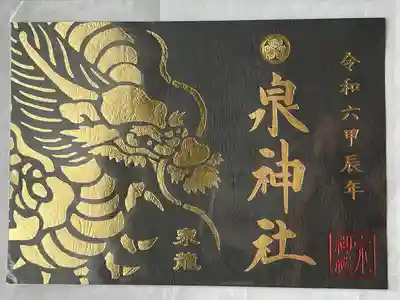 令和六甲辰年
泉神社
泉龍